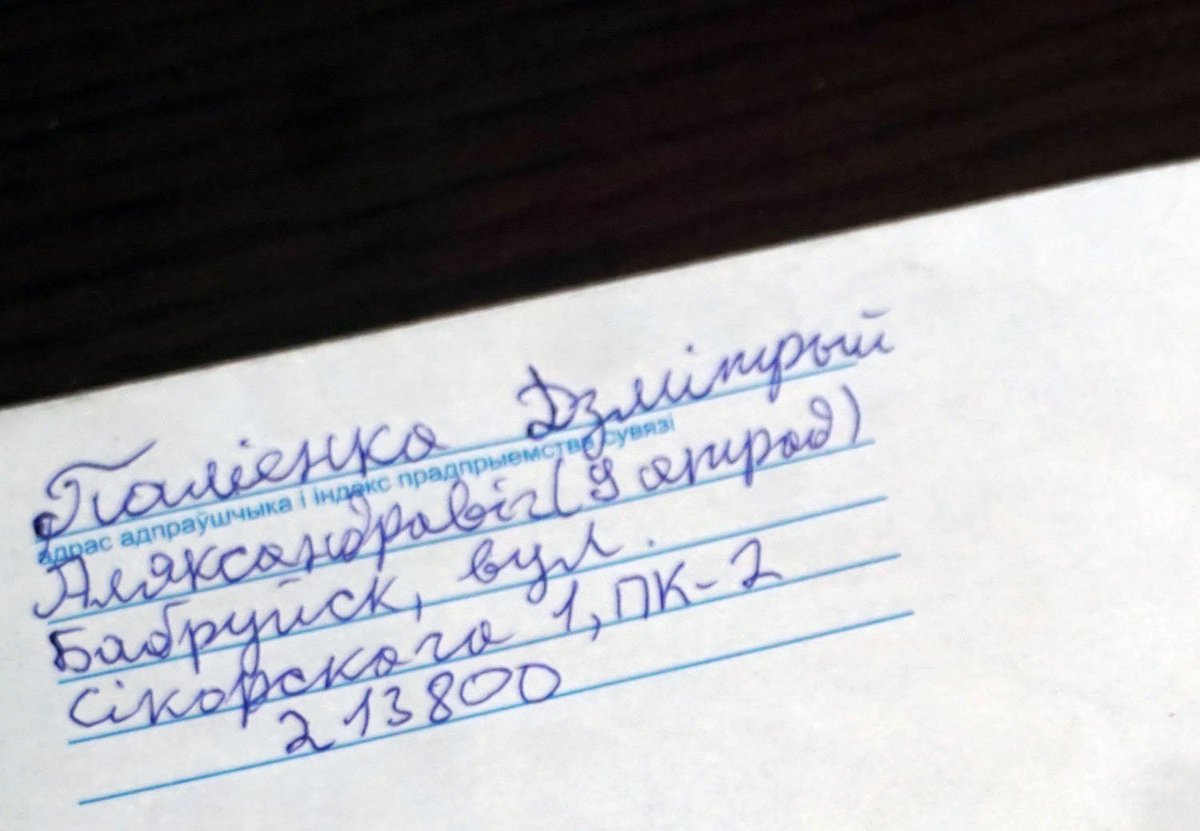 Паліенка Дзмітрый
адрас адпраўшчыка і індэкс прадпрыемства сувязі
Аляксандравіч (9 атрад)
Бабруйск, вул.
Сікорскага 1, ПК-2
213800